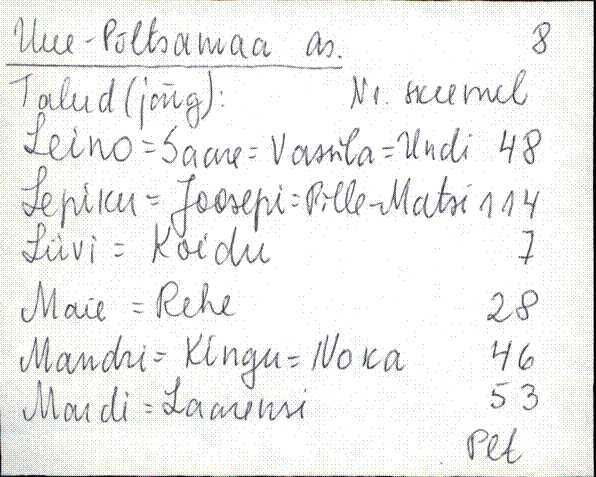 Uue-Põltsamaa as. 8
Talud (järg): Nr. skeemil
Leino = Saare = Vassila = Undi 48
Lepiku = Joosepi = Pille-Matsi 114
Liivi = Koidu 7
Maie = Rehe 28
Mandri = Kingu = Noka 46
Mardi = Laarensi 53
Plt